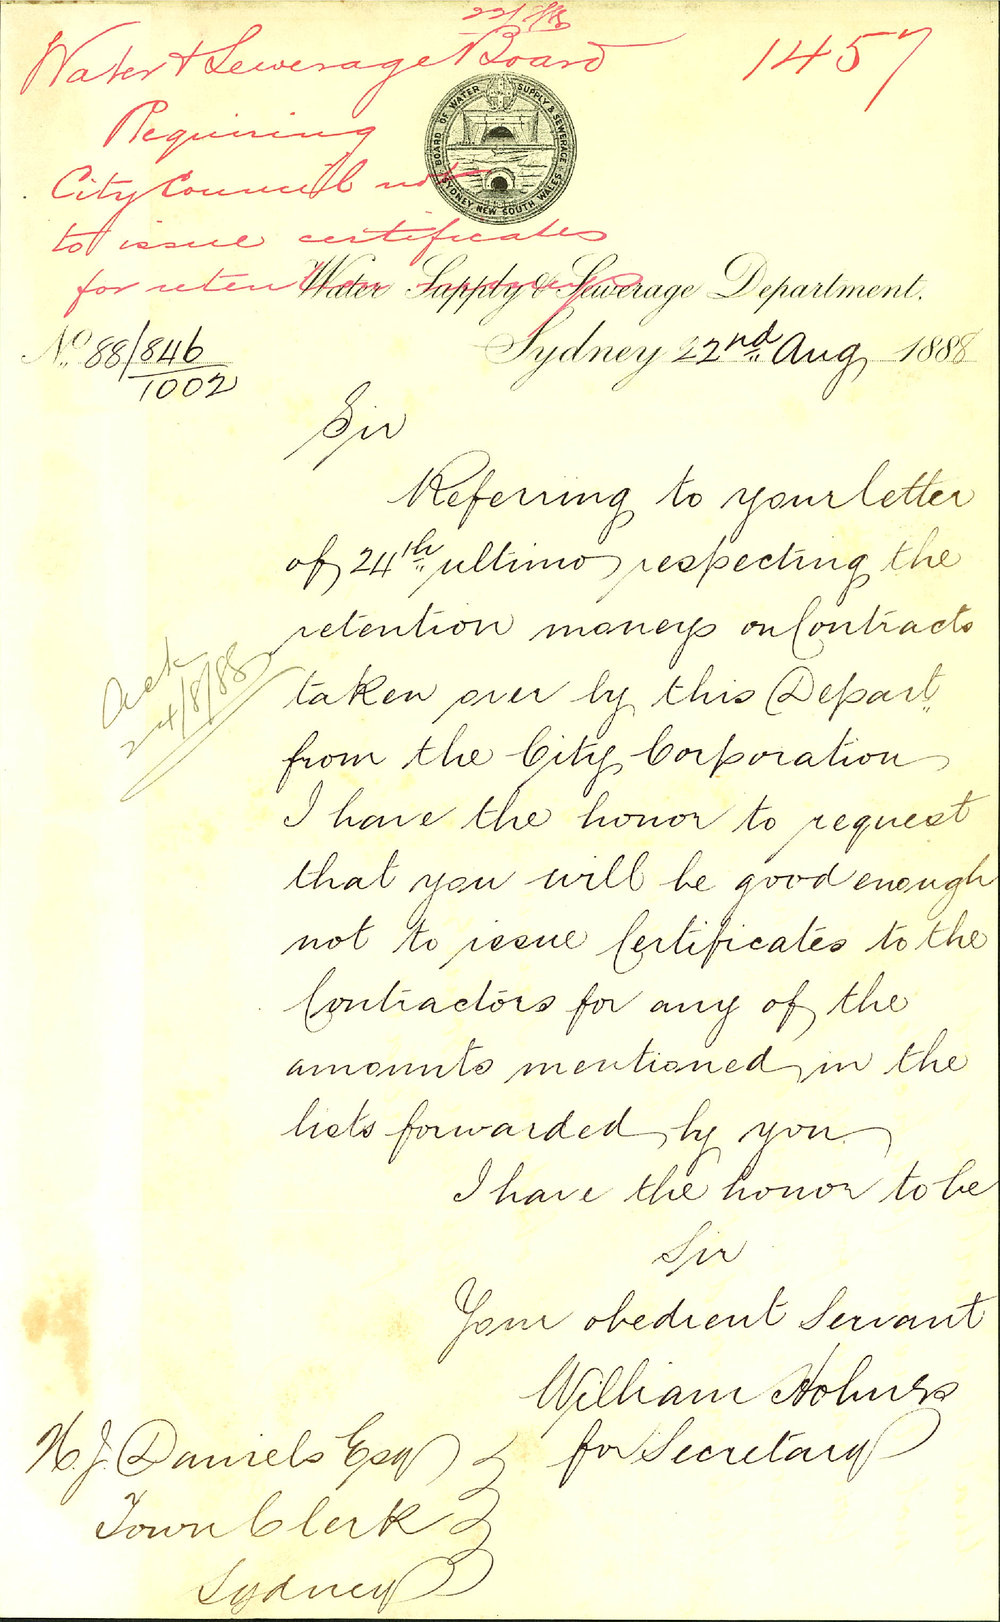 22/8/88
Water & Sewerage Board
1457
Requiring
City Council not
to issue certificates
for retention moneys
BOARD OF WATER SUPPLY & SEWERAGE
SYDNEY NEW SOUTH WALES
Water Supply & Sewerage Department.
No. 88/846
1002
Sydney 22nd Aug 1888
Sir
Referring to your letter
of 24th ultimo respecting the
retention moneys on Contracts
taken over by this Depart.
from the City Corporation
I have the honor to request
that you will be good enough
not to issue Certificates to the
Contractors for any of the
amounts mentioned in the
lists forwarded by you.
Ack
24/8/88
I have the honor to be
Sir
Your obedient Servant
William Holmes
for Secretary
H. J. Daniels Esq
Town Clerk
Sydney